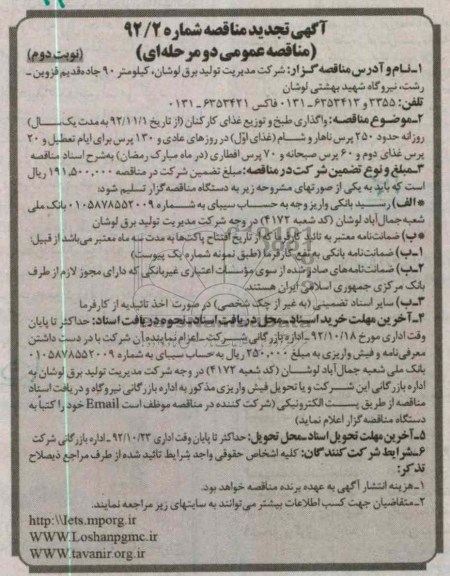 آگهی تجدید مناقصه شماره ۹۲/۲
(مناقصه عمومی دو مرحله‌ای)
(نوبت دوم)
۱-نام و آدرس مناقصه گزار: شرکت مدیریت تولید برق لوشان، کیلومتر ۹۰ جاده قدیم قزوین -
رشت، نیروگاه شهید بهشتی لوشان
تلفن: ۳۳۵۵ و ۶۲۵۳۴۱۳-۰۱۳۱ فاکس ۶۲۵۳۴۲۱-۰۱۳۱
۲-موضوع مناقصه: واگذاری طبخ و توزیع غذای کارکنان (از تاریخ ۹۲/۱۱/۱ به مدت یک سال)
روزانه حدود ۲۵۰ پرس ناهار و شام (غذای اول) در روزهای عادی و ۱۳۰ پرس برای ایام تعطیل و ۲۰
پرس غذای دوم و ۶۰ پرس صبحانه و ۷۰ پرس افطاری (در ماه مبارک رمضان) به شرح اسناد مناقصه
۳-مبلغ و نوع تضمین شرکت در مناقصه: مبلغ تضمین شرکت در مناقصه ۱۹۱,۵۰۰,۰۰۰ ریال
است که باید به یکی از صورتهای مشروحه زیر به دستگاه مناقصه گزار تسلیم شود:
*الف) رسید بانکی واریز وجه به حساب سیبای به شماره ۰۱۰۵۸۷۸۵۵۲۰۰۹ بانک ملی
شعبه جمال‌آباد لوشان (کد شعبه ۴۱۷۲) در وجه شرکت مدیریت تولید برق لوشان
*ب) ضمانت‌نامه معتبر به تائید کارفرما که از تاریخ افتتاح پاکت‌ها به مدت سه ماه معتبر می‌باشد از قبیل:
۱-ب) ضمانت‌نامه بانکی به نفع کارفرما (طبق نمونه شماره یک پیوست)
۲-ب) ضمانت‌نامه‌های صادر شده از سوی مؤسسات اعتباری غیربانکی که دارای مجوز لازم از طرف
بانک مرکزی جمهوری اسلامی ایران هستند.
۳-ب) سایر اسناد تضمینی (به غیر از چک شخصی) در صورت اخذ تائیدیه از کارفرما
۴-آخرین مهلت خرید اسناد-محل دریافت اسناد-نحوه دریافت اسناد: حداکثر تا پایان
وقت اداری مورخ ۹۲/۱۰/۱۸-اداره بازرگانی شرکت-اعزام نماینده آن شرکت با در دست داشتن
معرفی‌نامه و فیش واریزی به مبلغ ۲۵۰,۰۰۰ ریال به حساب سیبای به شماره ۰۱۰۵۸۷۸۵۵۲۰۰۹
بانک ملی شعبه جمال‌آباد لوشان (کد شعبه ۴۱۷۲) در وجه شرکت مدیریت تولید برق لوشان به
اداره بازرگانی این شرکت و یا تحویل فیش واریزی مذکور به اداره بازرگانی نیروگاه و دریافت اسناد
مناقصه از طریق پست الکترونیکی (شرکت کننده در مناقصه موظف است Email خود را کتباً به
دستگاه مناقصه گزار اعلام نماید)
۵-آخرین مهلت تحویل اسناد-محل تحویل: حداکثر تا پایان وقت اداری ۹۲/۱۰/۲۳-اداره بازرگانی شرکت
۶-شرایط شرکت کنندگان: کلیه اشخاص حقوقی واجد شرایط تائید شده از طرف مراجع ذیصلاح
تذکر:
۱-هزینه انتشار آگهی به عهده برنده مناقصه خواهد بود.
۲-متقاضیان جهت کسب اطلاعات بیشتر می‌توانند به سایتهای زیر مراجعه نمایند.
http:\\Iets.mporg.ir
WWW.Loshanpgmc.ir
WWW.tavanir.org.ir